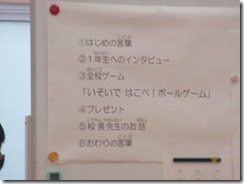 ①はじめの言葉
②1年生へのインタビュー
③全校ゲーム
「いそいで はこべ!ボールゲーム」
④プレゼント
⑤校長先生のお話
⑥おわりの言葉